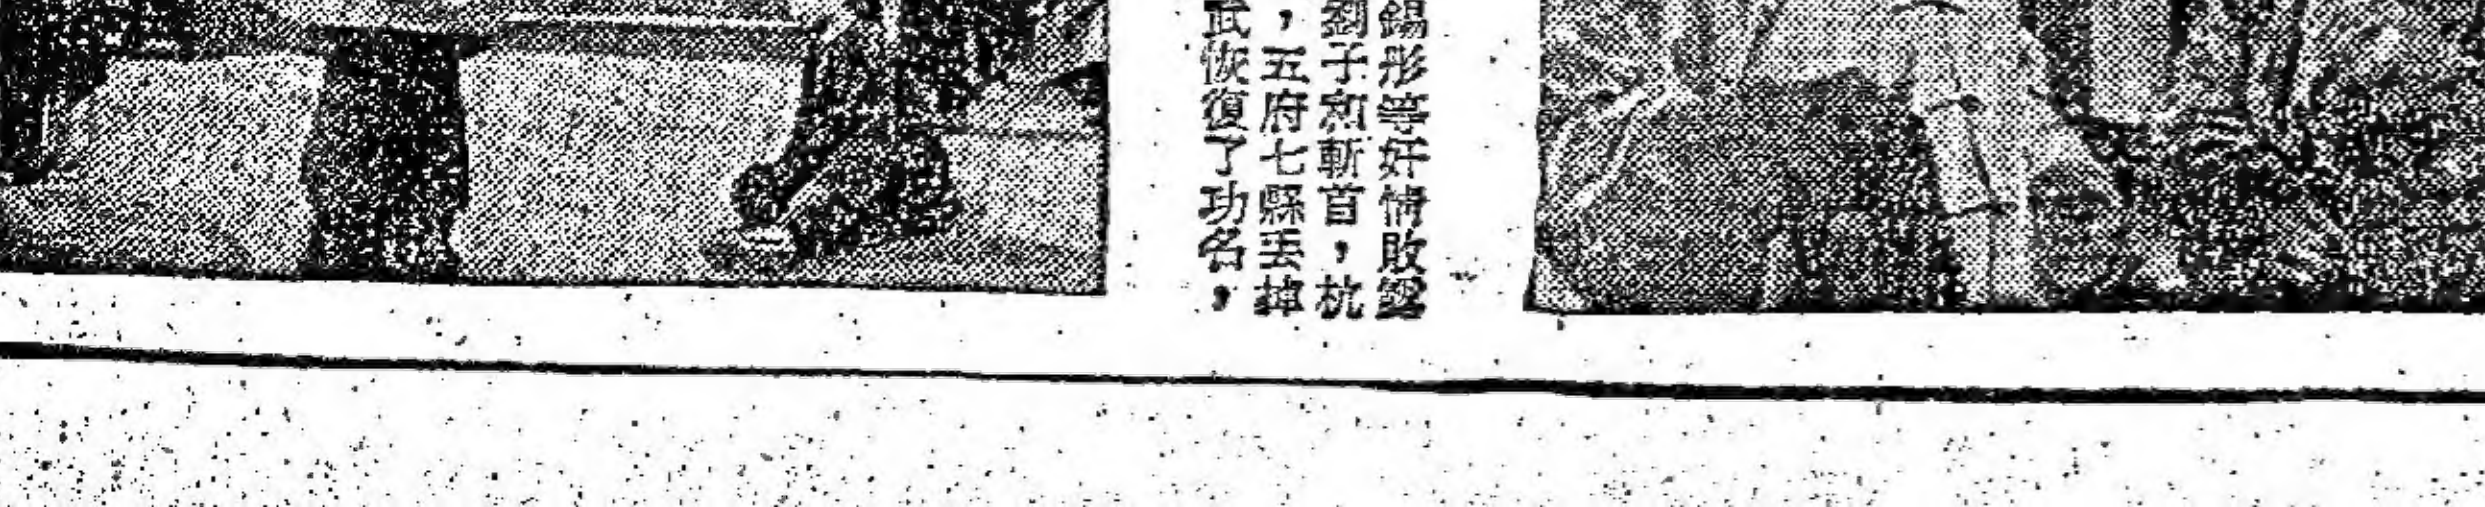 錫彤等奸情敗露
劉子和斬首，杭
，五府七縣丟掉
武恢復了功名，